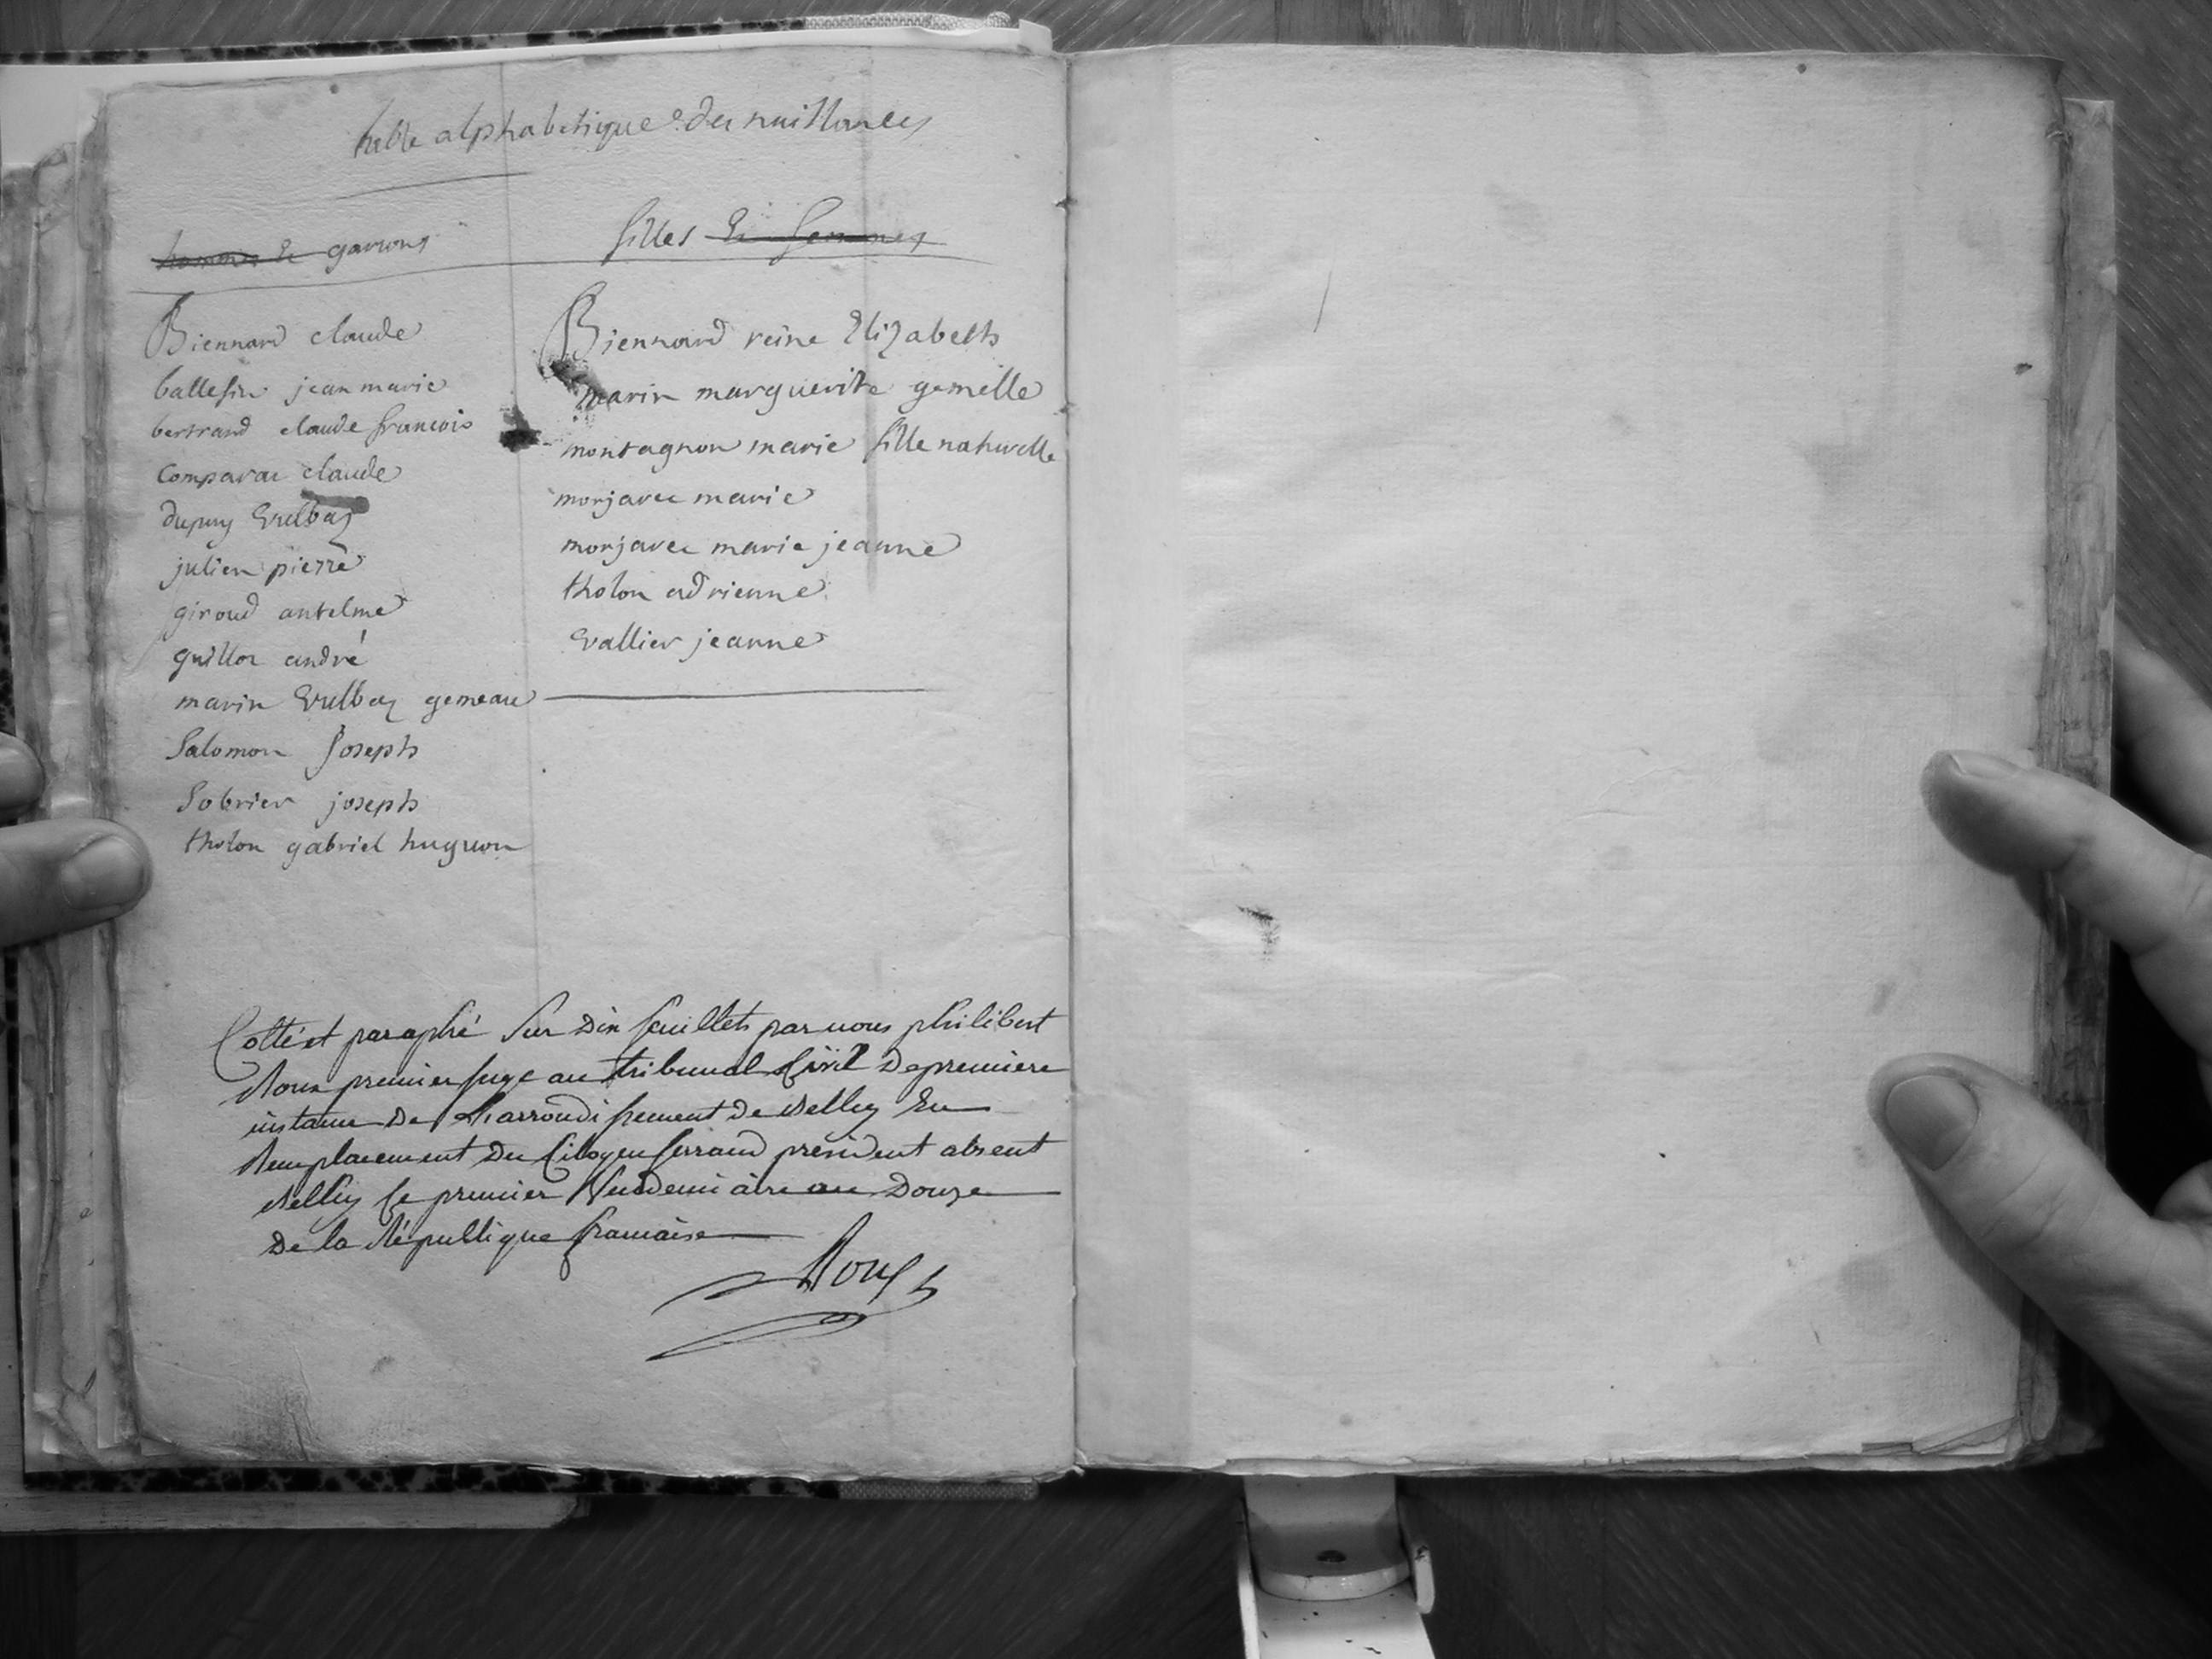 table alphabetique des naissances
hommes et garcons
Biennard claude
ballefin jean marie
bertrand claude francois
Comparac claude
dupuy Vulbaz
julien pierre
giroud antelme
guillor andré
marin Vulbaz gemeau
Salomon Joseph
Sobrier joseph
tholon gabriel hugnon
filles et femmes
Biennard reine Elizabeth
marin marguerite gemelle
montagnon marie fille naturelle
morjaree marie
morjaree marie jeanne
tholon adrienne
Vallier jeanne
Cotté et paraphé Sur Dix feuillets par nous philibert
Roux premier juge au tribunal Civil De premiere
instance De L'arrondissement De Belley En
Remplacement Du Citoyen ferrand president absent
Belley Le premier Vendemiaire an Douze
De la République francaise
Roux